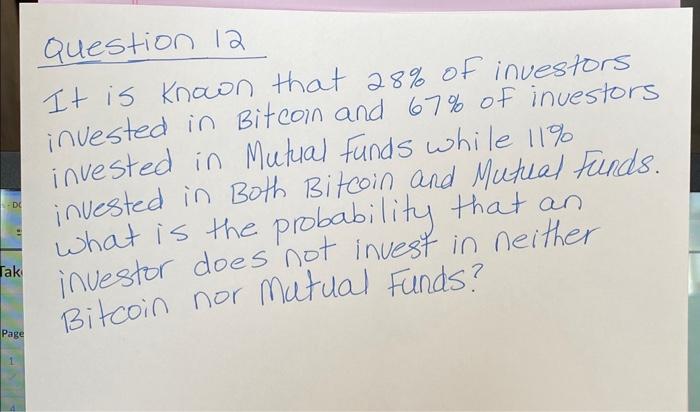 Question 12
It is known that 28% of investors
invested in Bitcoin and 67% of investors
invested in Mutual funds while 11%
invested in Both Bitcoin and Mutual Funds.
What is the probability that an
investor does not invest in neither
Bitcoin nor Mutual Funds?
Page
1